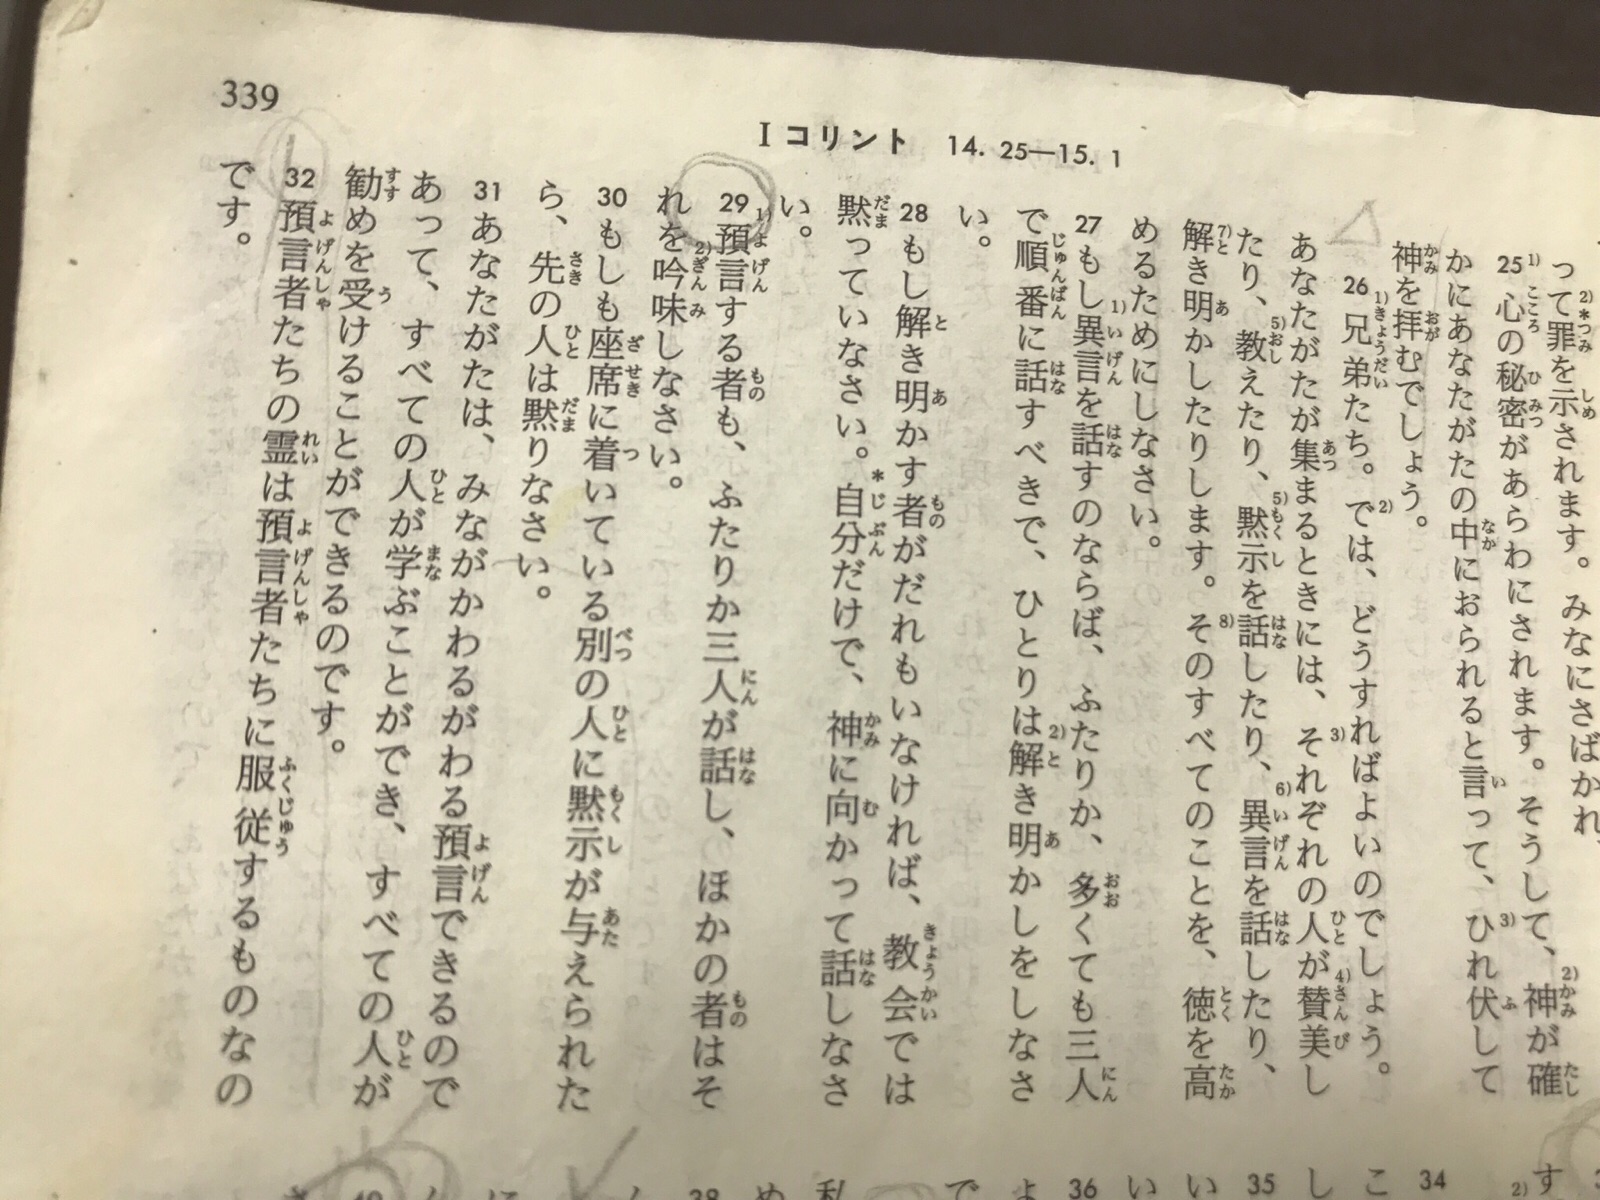 339
I コリント 14. 25—15. 1
って罪を示されます。みなにさばかれ、
25 心の秘密があらわにされます。そうして、神が確
かにあなたがたの中におられると言って、ひれ伏して
神を拝むでしょう。
26 兄弟たち。では、どうすればよいのでしょう。
あなたがたが集まるときには、それぞれの人が賛美し
たり、教えたり、黙示を話したり、異言を話したり、
解き明かしたりします。そのすべてのことを、徳を高
めるためにしなさい。
27 もし異言を話すのならば、ふたりか、多くても三人
で順番に話すべきで、ひとりは解き明かしをしなさ
い。
28 もし解き明かす者がだれもいなければ、教会では
黙っていなさい。自分だけで、神に向かって話しなさ
い。
29 預言する者も、ふたりか三人が話し、ほかの者はそ
れを吟味しなさい。
30 もしも座席に着いている別の人に黙示が与えられた
ら、先の人は黙りなさい。
31 あなたがたは、みながかわるがわる預言できるので
あって、すべての人が学ぶことができ、すべての人が
勧めを受けることができるのです。
32 預言者たちの霊は預言者たちに服従するものなの
です。
す
34
こ
し
35
い
い
36
よ
で
私
め
38